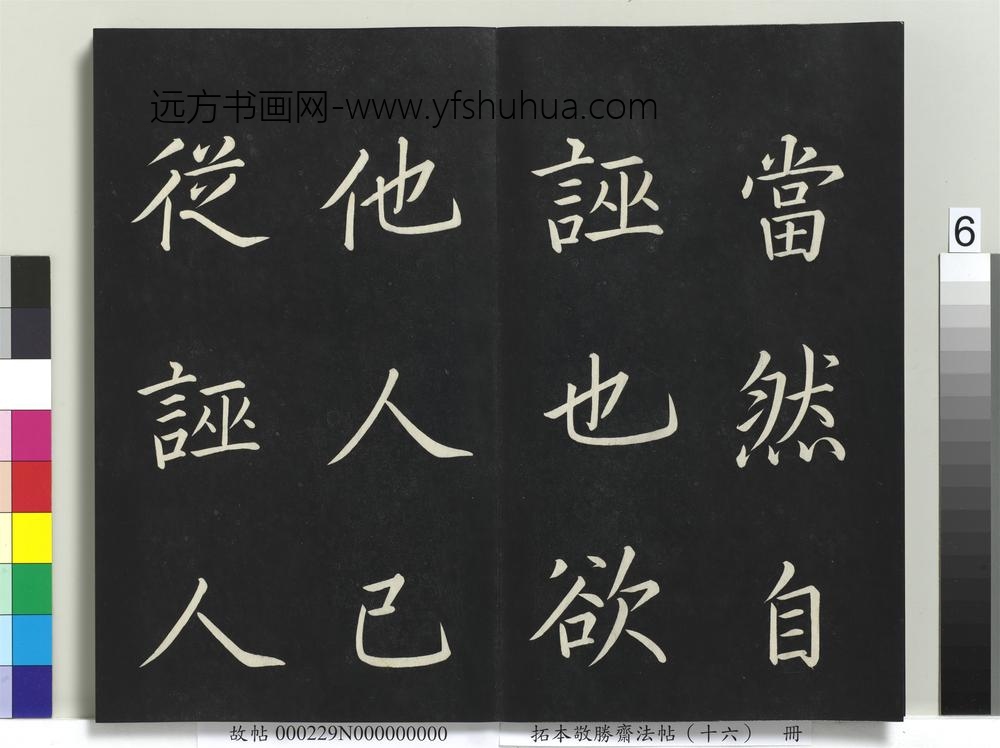 远方书画网-www.yfshuhua.com
當然自
誣也欲
他人己
從誣人
6
故帖 000229N000000000
拓本敬勝齋法帖（十六） 冊